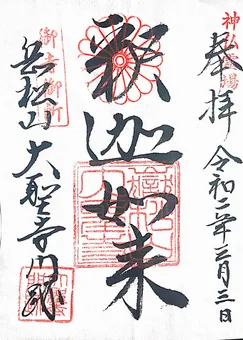 神仏霊場
奉拝 令和二年三月三日
釈迦如来
御寺御所
岳松山 大聖寺門跡